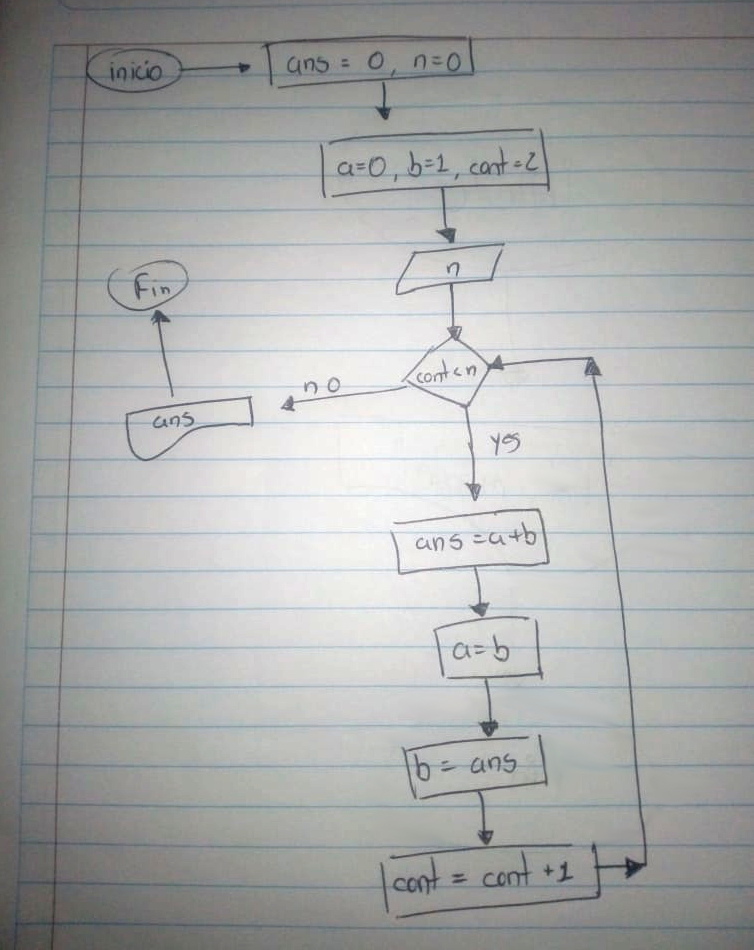 inicio
ans = 0, n=0
a=0, b=1, cont=2
n
cont<n
no
ans
Fin
yes
ans = a+b
a=b
b = ans
cont = cont +1